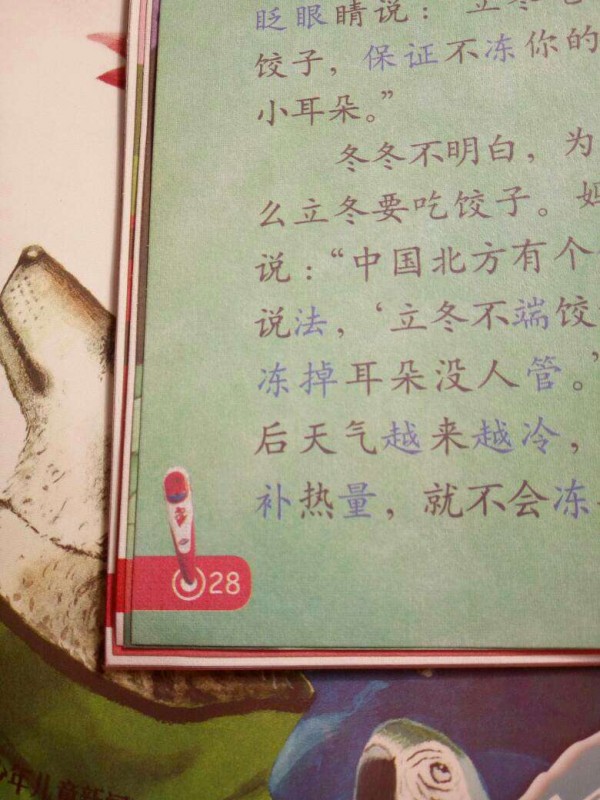 眨眼睛说：“立冬吃
饺子，保证不冻你的
小耳朵。”
冬冬不明白，为
么立冬要吃饺子。妈
说：“中国北方有个
说法，‘立冬不端饺
冻掉耳朵没人管。’
后天气越来越冷，
补热量，就不会冻
28
少年儿童新闻